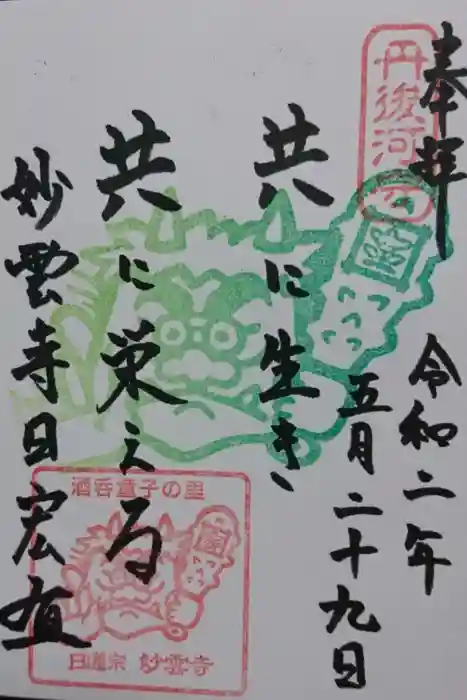 奉拝
丹後河
令和二年
五月二十九日
共に生き
共に栄える
妙雲寺日宏
酒呑童子の里
日蓮宗 妙雲寺